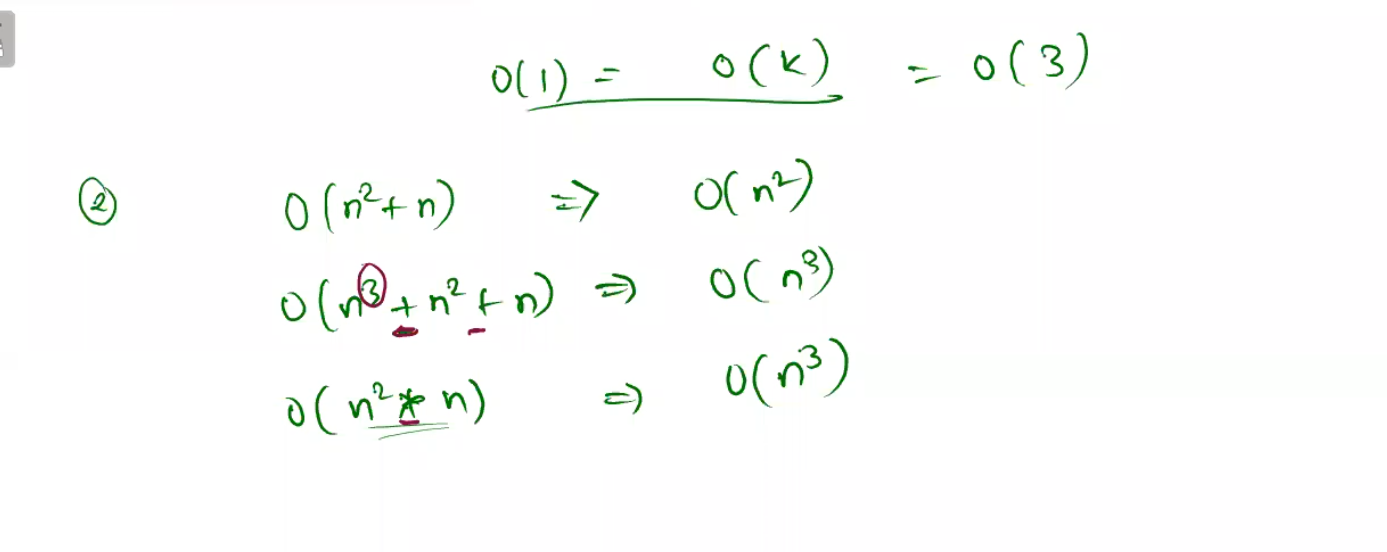 O(1) = O(k) = O(3)
② O(n²+n) => O(n²)
O(n³+n²+n) => O(n³)
O(n²*n) => O(n³)